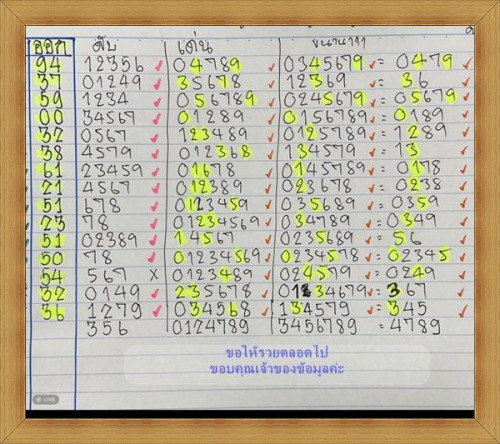 ออก ดับ เด่น
94 12356 ✓ 04789 ✓ 0345679 ✓ = 0479 ✓
37 01249 ✓ 35678 ✓ 12369 ✓ = 36 ✓
59 1234 ✓ 056789 ✓ 0245679 ✓ = 05679 ✓
00 34567 ✓ 01289 ✓ 0156789 ✓ = 0189 ✓
32 0567 ✓ 123489 ✓ 0125789 ✓ = 1289 ✓
38 4579 ✓ 012368 ✓ 134579 ✓ = 13 ✓
61 23459 ✓ 01678 ✓ 0145789 ✓ = 0178 ✓
21 4567 ✓ 012389 ✓ 023678 ✓ = 0238 ✓
51 678 ✓ 0123459 ✓ 035689 ✓ = 0359 ✓
23 78 ✓ 01234569 ✓ 034789 ✓ = 0349 ✓
51 02389 ✓ 14567 ✓ 0235689 ✓ = 56 ✓
50 78 ✓ 01234569 ✓ 0234578 ✓ = 02345 ✓
54 567 × 0123489 ✓ 024579 ✓ = 0249 ✓
32 0149 ✓ 235678 ✓ 34679 ✓ = 367 ✓
36 1279 ✓ 034568 ✓ 134579 ✓ = 345 ✓
356 0124789 3456789 = 4789
ขอให้รวยตลอดไป
ขอบคุณเจ้าของข้อมูลค่ะ
LIVE